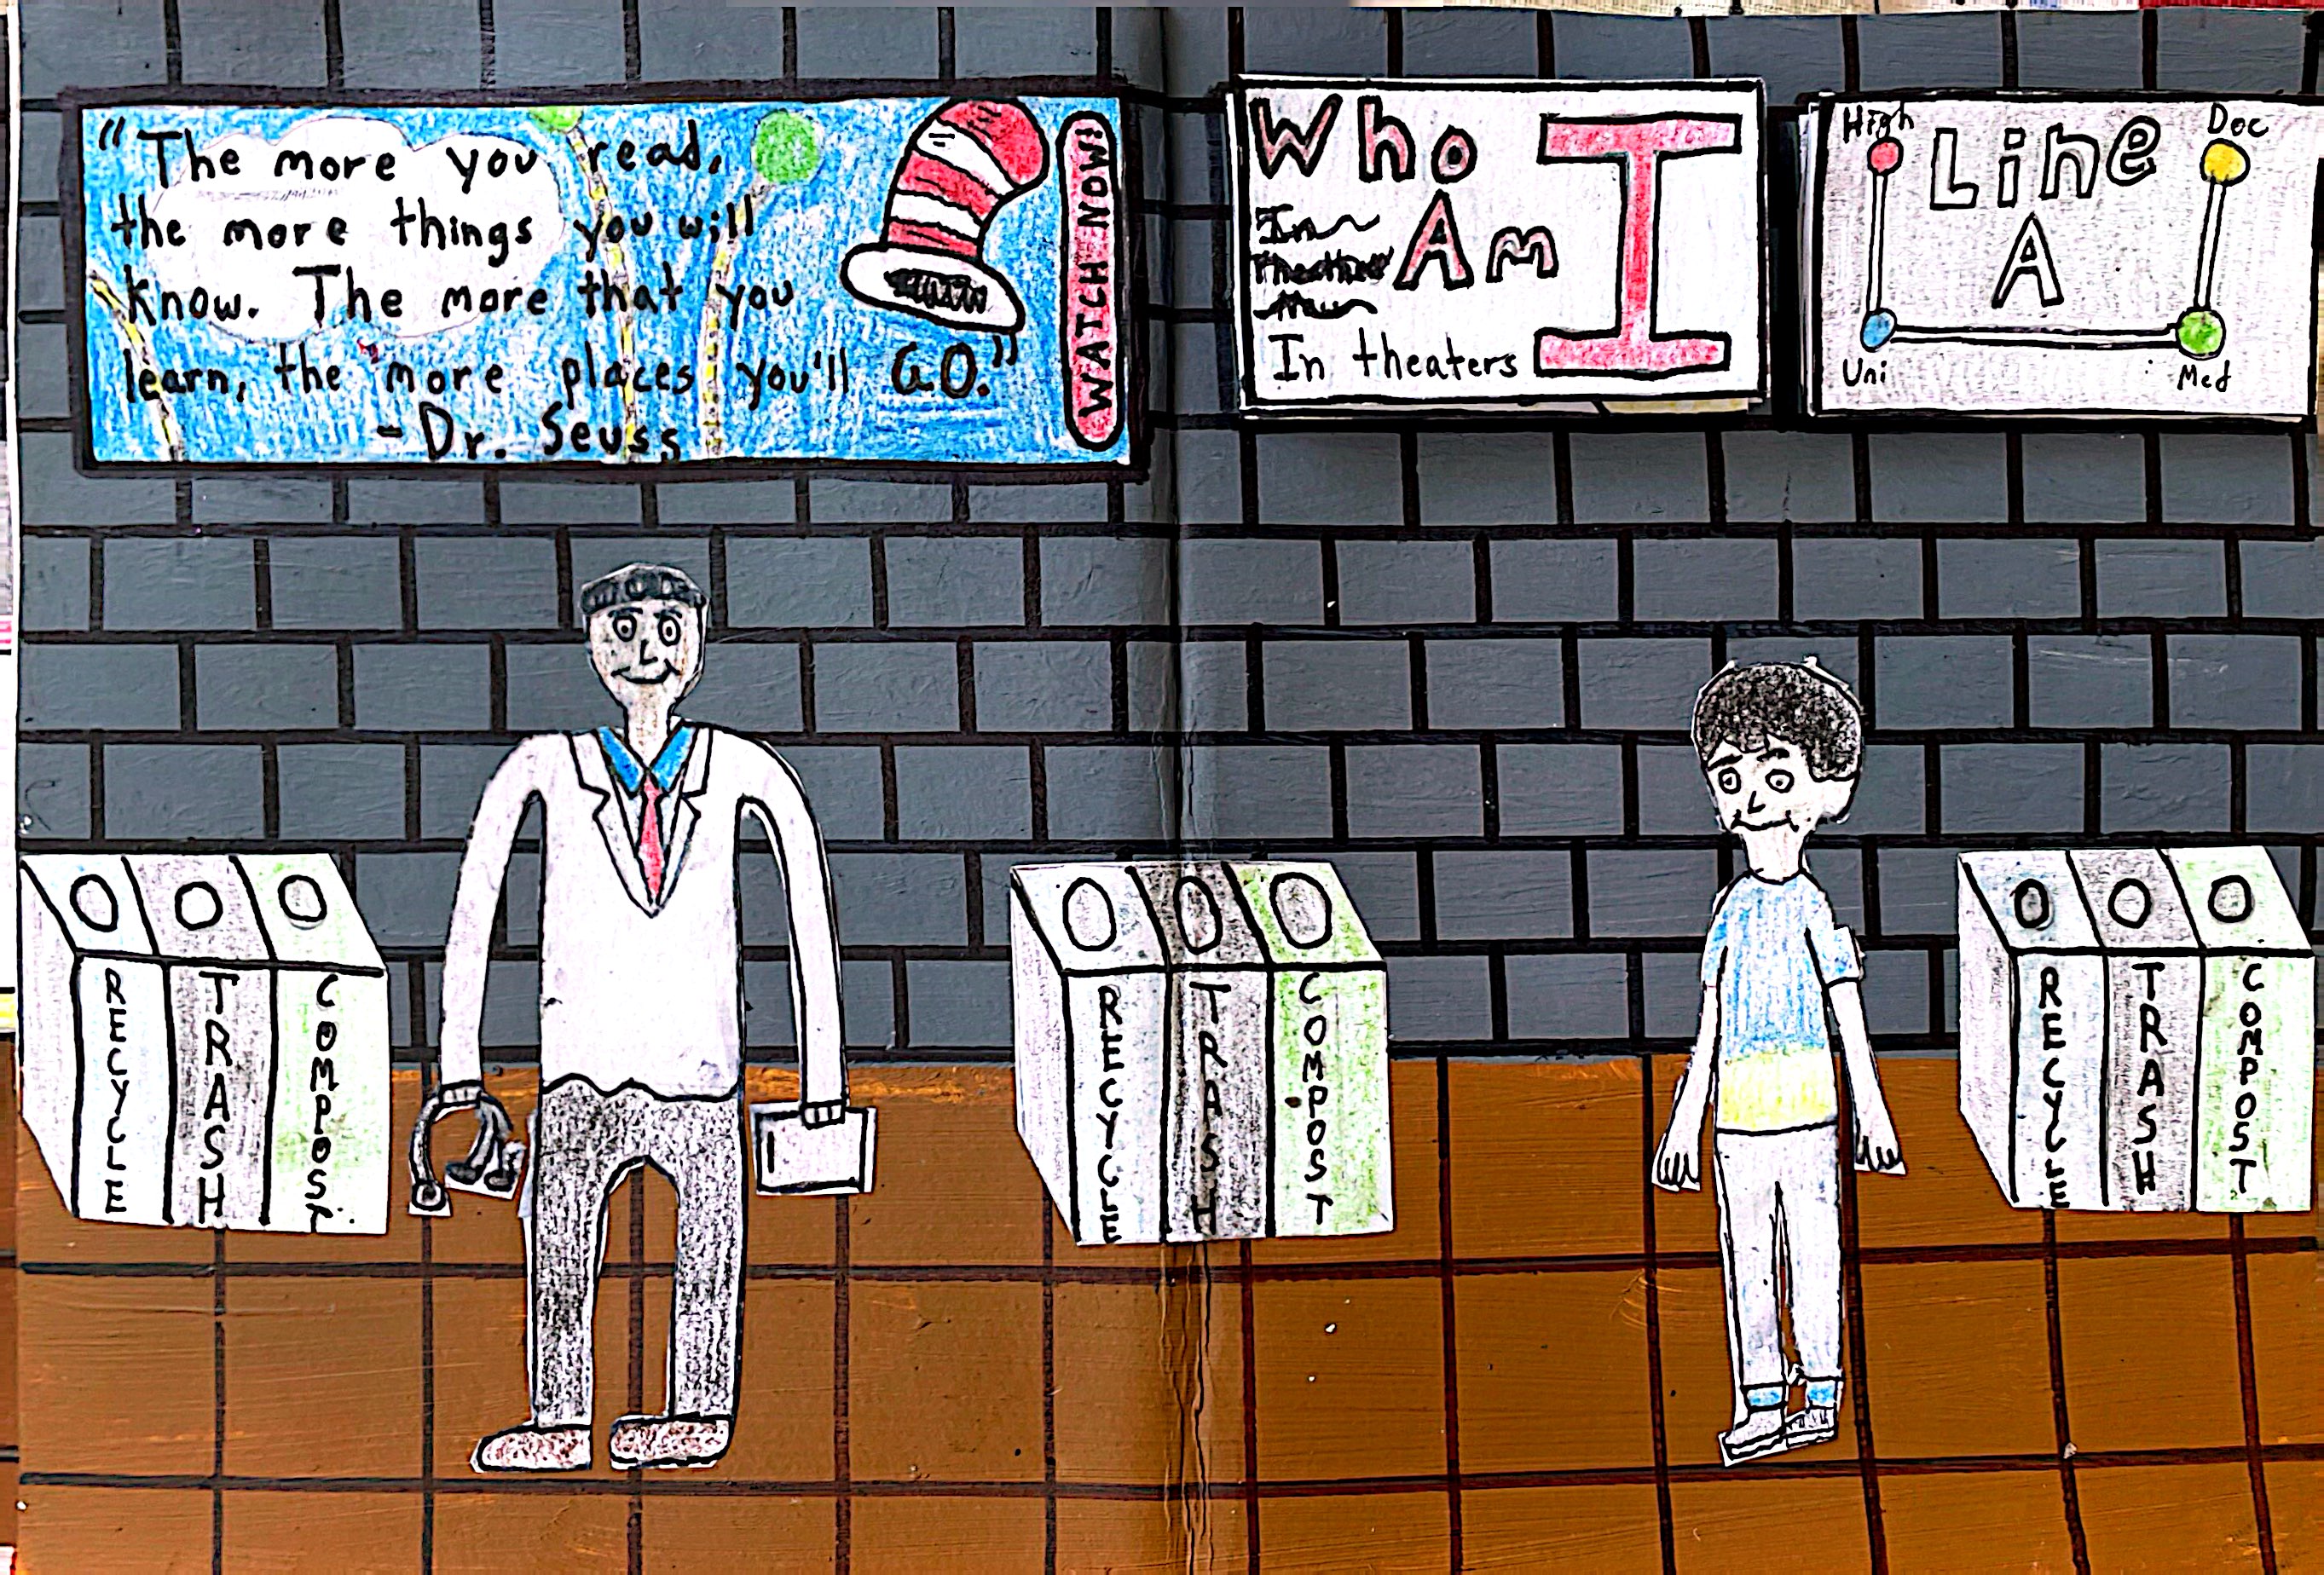 "The more you read,
the more things you will
know. The more that you
learn, the more places you'll GO."
- Dr. Seuss
WATCH NOW!
Who
Am
I
In theaters
High
Doc
Line
A
Uni
Med
RECYCLE
TRASH
COMPOST
RECYCLE
TRASH
COMPOST
RECYCLE
TRASH
COMPOST